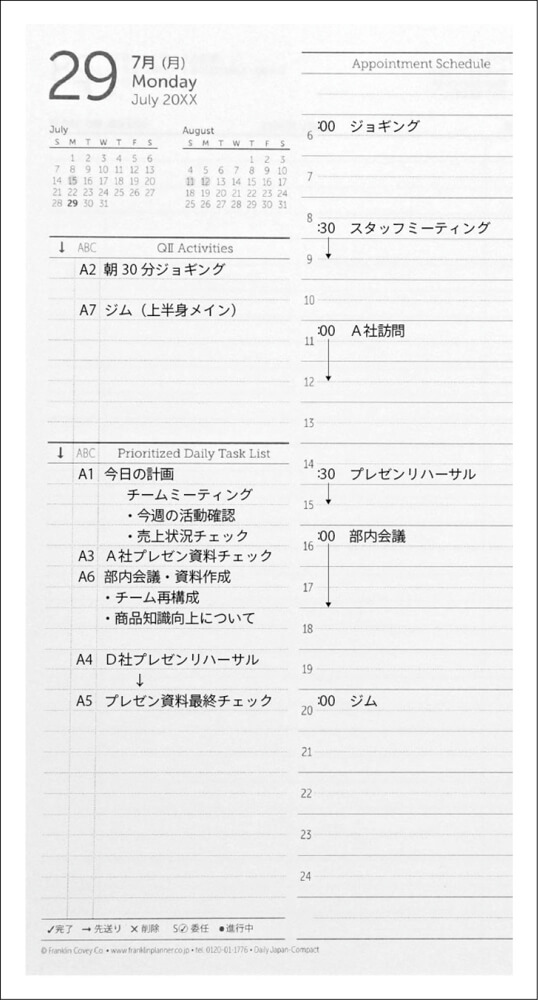 29
7月 (月)
Monday
July 20XX
July
S M T W T F S
1 2 3 4 5 6
7 8 9 10 11 12 13
14 15 16 17 18 19 20
21 22 23 24 25 26 27
28 29 30 31
August
S M T W T F S
1 2 3
4 5 6 7 8 9 10
11 12 13 14 15 16 17
18 19 20 21 22 23 24
25 26 27 28 29 30 31
↓ ABC QII Activities
A2 朝30分ジョギング
A7 ジム（上半身メイン）
↓ ABC Prioritized Daily Task List
A1 今日の計画
チームミーティング
・今週の活動確認
・売上状況チェック
A3 A社プレゼン資料チェック
A6 部内会議・資料作成
・チーム再構成
・商品知識向上について
A4 D社プレゼンリハーサル
↓
A5 プレゼン資料最終チェック
✓完了 → 先送り ✕ 削除 S✓ 委任 ●進行中
Appointment Schedule
6 :00 ジョギング
7
8
:30 スタッフミーティング
9
10
11 :00 A社訪問
12
13
14
:30 プレゼンリハーサル
15
16 :00 部内会議
17
18
19
20 :00 ジム
21
22
23
24
© Franklin Covey Co. • www.franklinplanner.co.jp • tel. 0120-01-1776 • Daily Japan-Compact